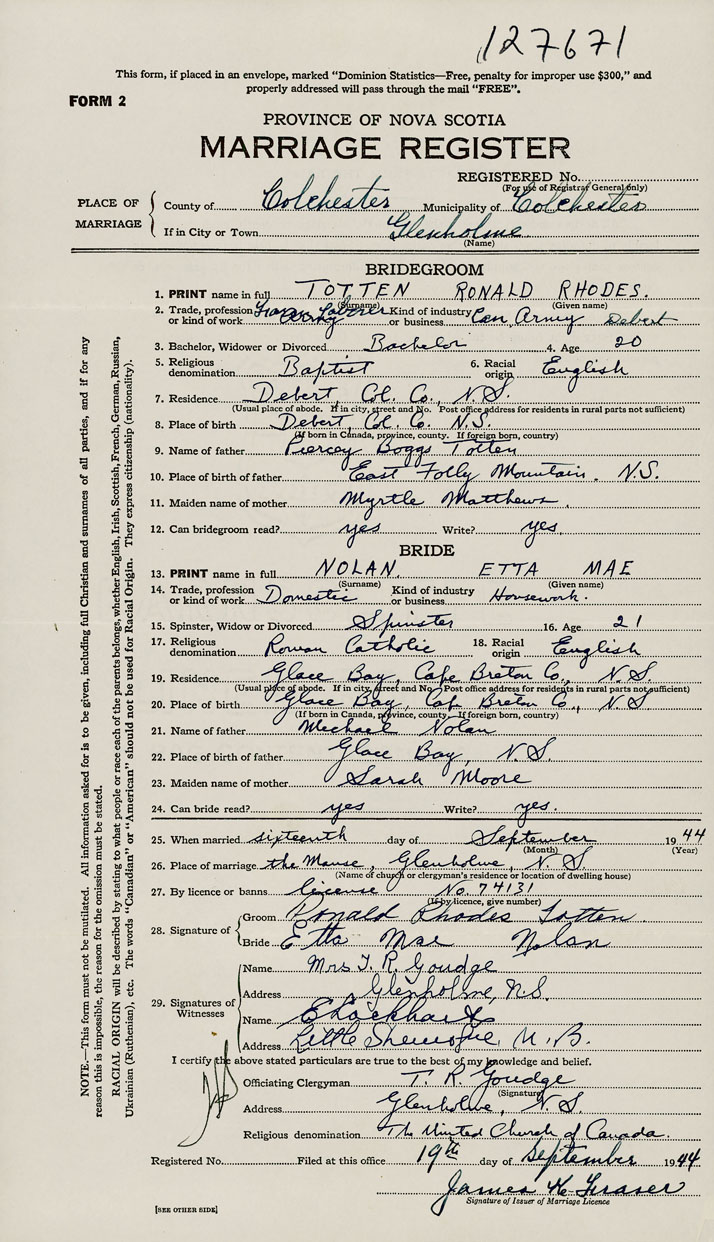 127671
This form, if placed in an envelope, marked "Dominion Statistics—Free, penalty for improper use $300," and
properly addressed will pass through the mail "FREE".
FORM 2
PROVINCE OF NOVA SCOTIA
MARRIAGE REGISTER
REGISTERED No.
(For use of Registrar General only)
PLACE OF MARRIAGE
County of Colchester Municipality of Colchester
If in City or Town Glenholme
(Name)
BRIDEGROOM
1. PRINT name in full TOTTEN RONALD RHODES.
(Surname) (Given name)
2. Trade, profession or kind of work Laborer Army Kind of industry or business Can. Army Debert
3. Bachelor, Widower or Divorced Bachelor 4. Age 20
5. Religious denomination Baptist 6. Racial origin English
7. Residence Debert, Col. Co., N.S.
(Usual place of abode. If in city, street and No. Post office address for residents in rural parts not sufficient)
8. Place of birth Debert, Col. Co. N.S.
(If born in Canada, province, county. If foreign born, country)
9. Name of father Piercey Boggs Totten
10. Place of birth of father East Folly Mountain. N.S.
11. Maiden name of mother Myrtle Matthews.
12. Can bridegroom read? yes Write? yes.
BRIDE
13. PRINT name in full NOLAN ETTA MAE
(Surname) (Given name)
14. Trade, profession or kind of work Domestic Kind of industry or business Housework.
15. Spinster, Widow or Divorced Spinster 16. Age 21
17. Religious denomination Roman Catholic 18. Racial origin English
19. Residence Glace Bay, Cape Breton Co., N.S.
(Usual place of abode. If in city, street and No. Post office address for residents in rural parts not sufficient)
20. Place of birth Glace Bay, Cap Breton Co., N S
(If born in Canada, province, county. If foreign born, country)
21. Name of father Michael Nolan
22. Place of birth of father Glace Bay, N.S.
23. Maiden name of mother Sarah Moore
24. Can bride read? yes Write? yes.
25. When married sixteenth day of September 1944
(Month) (Year)
26. Place of marriage the Manse, Glenholme, N.S.
(Name of church or clergyman's residence or location of dwelling house)
27. By licence or banns license No. 74131
(If by licence, give number)
28. Signature of
Groom Ronald Rhodes Totten
Bride Etta Mae Nolan
29. Signatures of Witnesses
Name Mrs T. R. Goudge
Address Glenholme, N.S.
Name E Lockhart
Address Little Shemogue, N.B.
I certify the above stated particulars are true to the best of my knowledge and belief.
Officiating Clergyman T. R. Goudge
(Signature)
Address Glenholme, N.S.
Religious denomination The United Church of Canada.
Registered No. Filed at this office 19th day of September 1944
James H. Fraser
Signature of Issuer of Marriage Licence
[SEE OTHER SIDE]
NOTE.—This form must not be mutilated. All information asked for is to be given, including full Christian and surnames of all parties, and if for any
reason this is impossible, the reason for the omission must be stated.
RACIAL ORIGIN will be described by stating to what people or race each of the parents belongs, whether English, Irish, Scottish, French, German, Russian,
Ukrainian (Ruthenian), etc. The words "Canadian" or "American" should not be used for Racial Origin. They express citizenship (nationality).